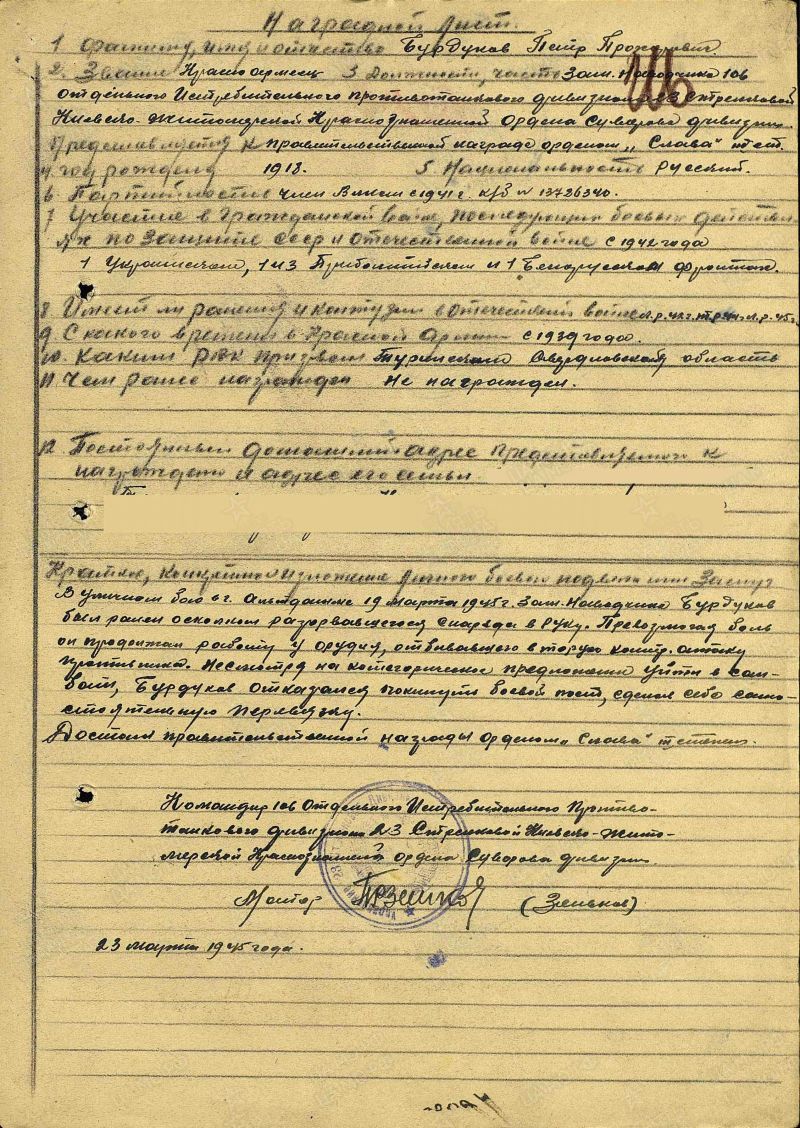 Наградной лист.
1 Фамилия, имя и отчество Бурдуков Петр Прохорович.
2. Звание Красноармеец 3 Должность, часть Зам. Наводчика 106
отдельного Истребительного противотанкового дивизиона 23 Стрелковой
Киевско-Житомирской Краснознаменной ордена Суворова дивизии.
Представляется к правительственной награде орденом „Слава" III ст.
4. год рождения 1918. 5. Национальность Русский.
6 Партийность член ВЛКСМ с 1941 г. к/б № 13726340.
7 Участие в гражданской войне, последующих боевых действи-
ях по защите СССР и отечественной войне с 1942 года
1 Украинском, 1 и 3 Прибалтийском и 1 Белорусском фронтах.
8 Имеет ли ранения и контузии в отечественной войне
9 С какого времени в Красной Армии с 1939 года.
10. Каким РВК призван Туринским Свердловской область
11 Чем ранее награжден Не награжден.
12 Постоянный домашний адрес представляемого к
награждению и адрес его семьи.
Краткое, конкретное изложение личного боевого подвига или заслуг
В уличном бою в г. Альтдамме 19 марта 1945 г. Зам. Наводчика Бурдуков
был ранен осколком разорвавшегося снаряда в руку. Превозмогая боль
он продолжал работу у орудия, отбивавшего вторую контр.атаку
противника. Несмотря на категорическое предложение уйти в сан-
бат, Бурдуков отказался покинуть боевой пост, сделав себе само-
стоятельную перевязку.
Достоин правительственной награды орденом „Слава" III степени.
Командир 106 Отдельного Истребительного Противо-
танкового дивизиона 23 Стрелковой Киевско-Жито-
мирской Краснознаменной ордена Суворова дивизии.
Майор (Зеньков)
23 марта 1945 года.